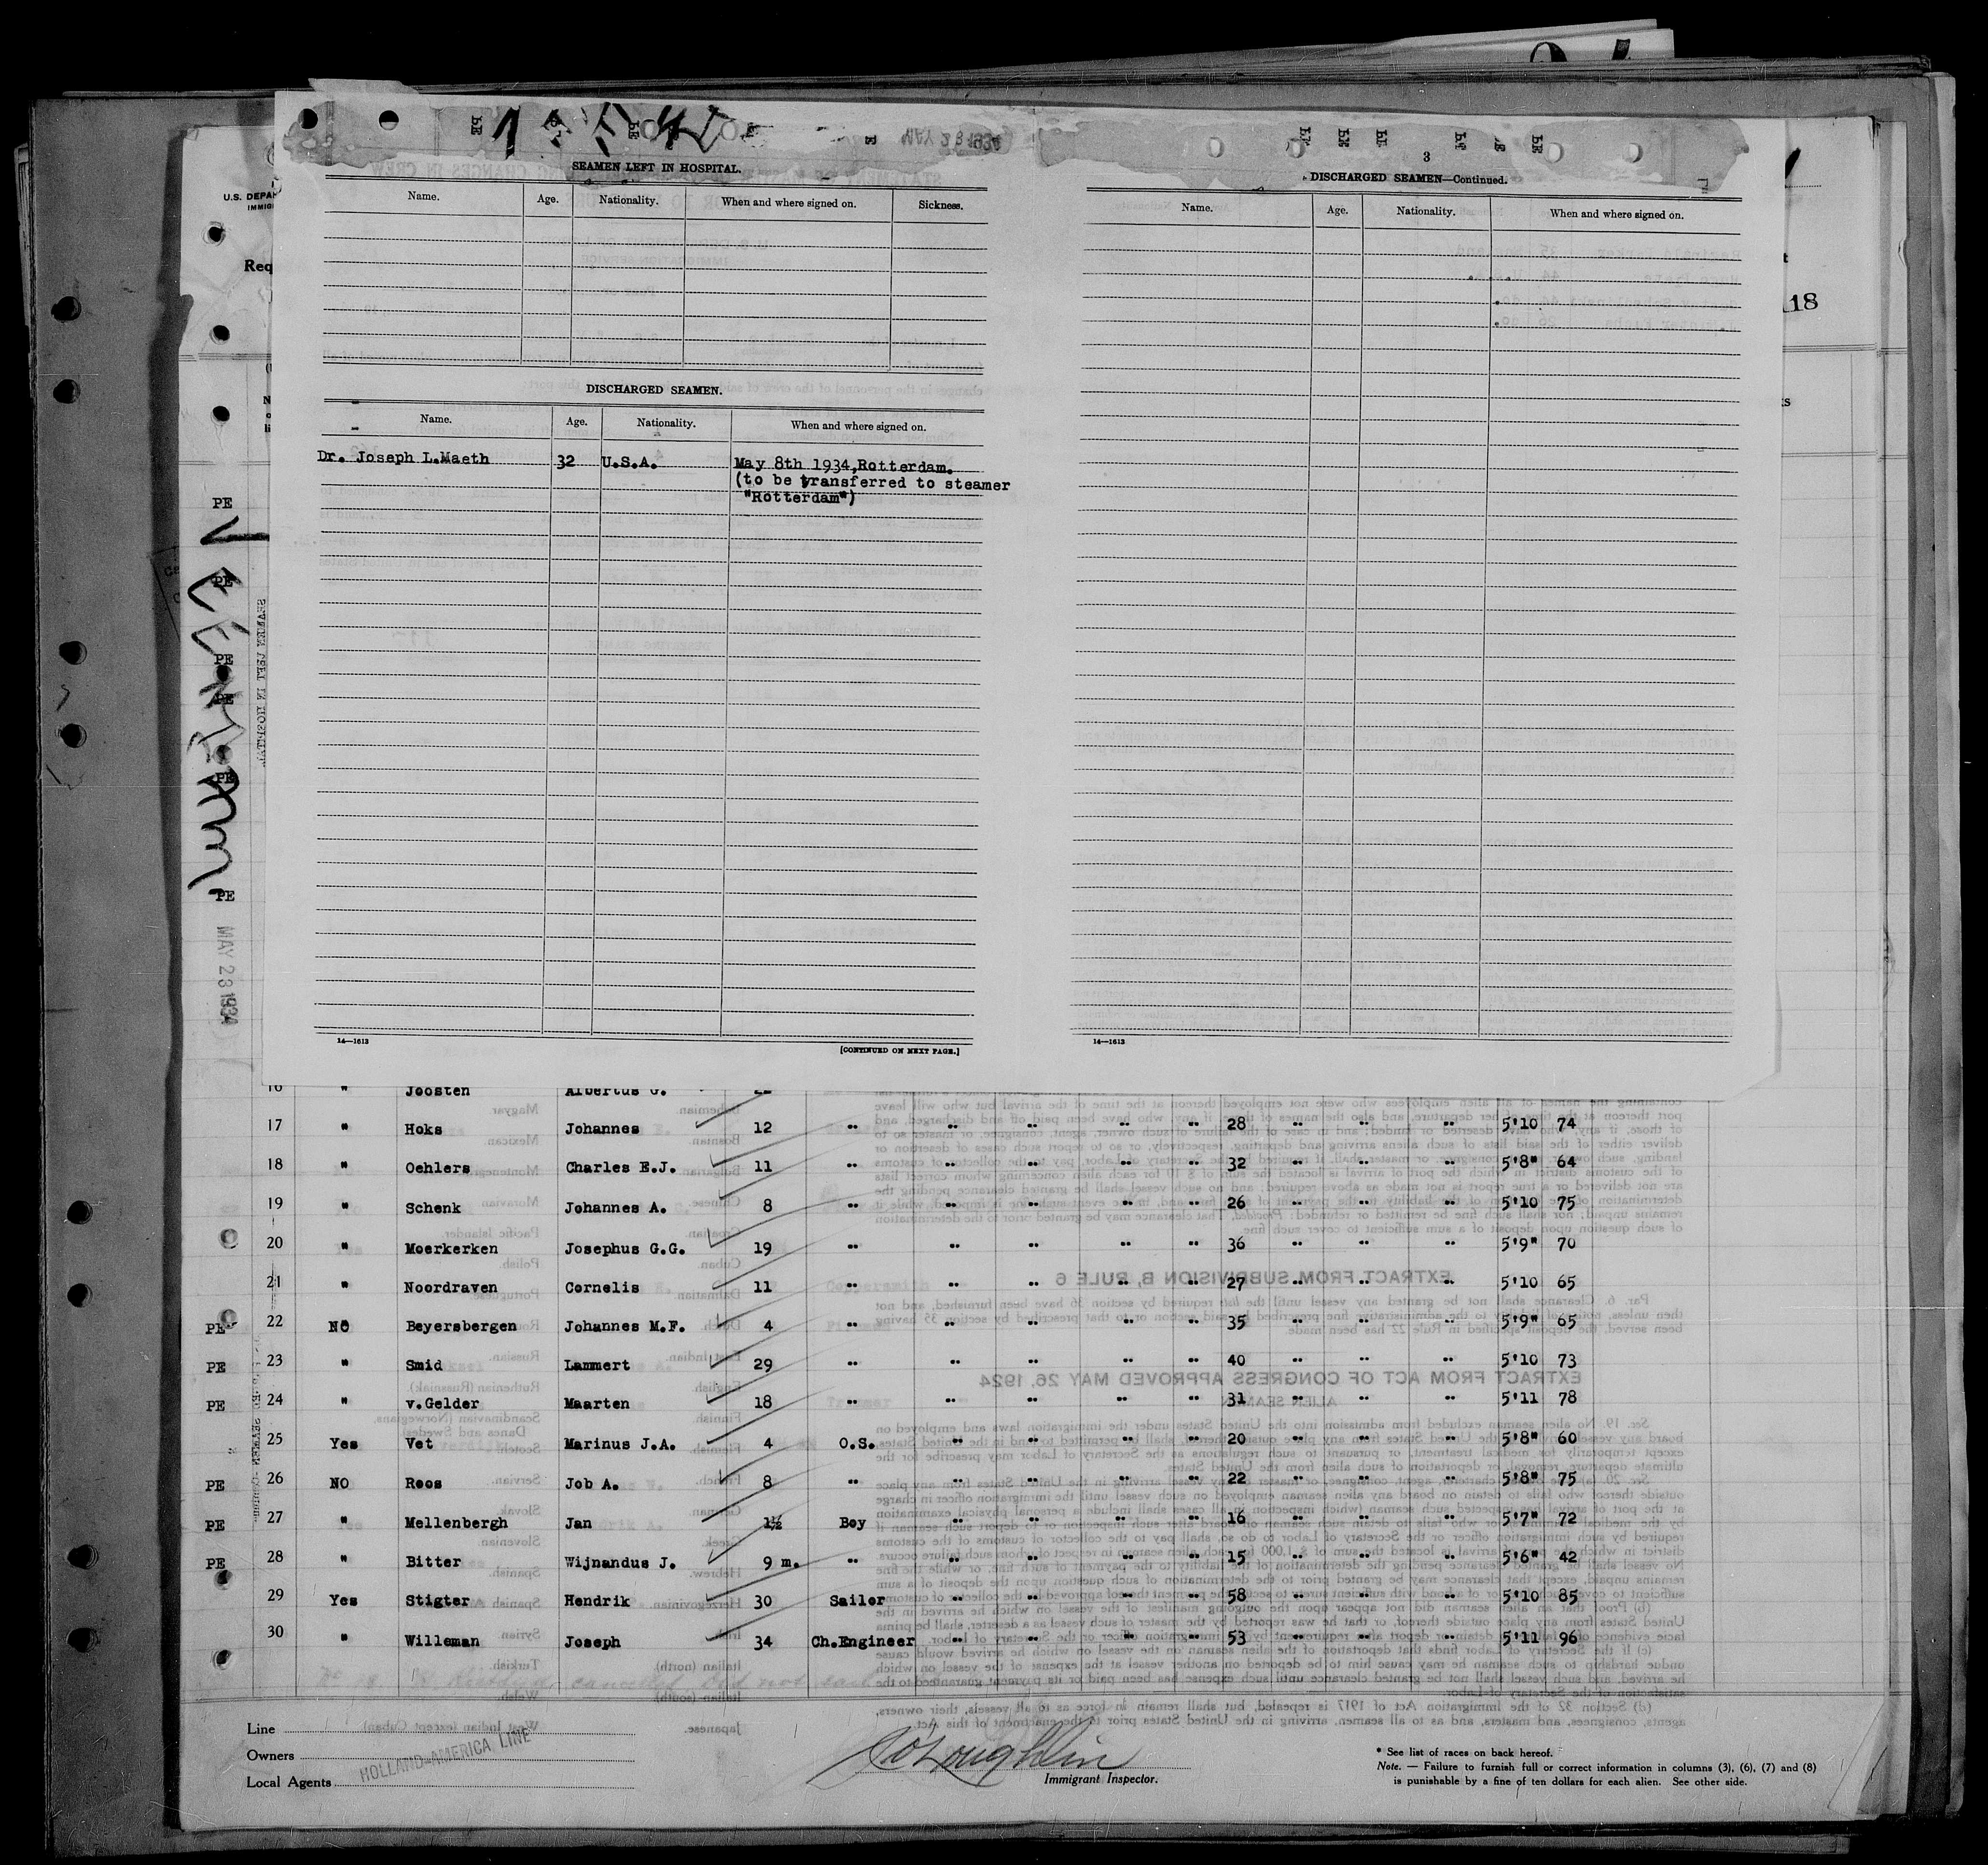 SEAMEN LEFT IN HOSPITAL.
Name. Age. Nationality. When and where signed on. Sickness.
DISCHARGED SEAMEN.
Name. Age. Nationality. When and where signed on.
Dr. Joseph L.Maeth 32 U.S.A. May 8th 1934,Rotterdam.
(to be transferred to steamer
"Rotterdam")
14—1613 [CONTINUED ON NEXT PAGE.]
MAY 23 1934
3
DISCHARGED SEAMEN—Continued.
Name. Age. Nationality. When and where signed on.
14—1613
U.S. DEPA
IMMIG
Req
18
PE
PE
PE
PE
PE
PE
MAY 23 1934
16 " Joosten Albertus G.
17 " Hoks Johannes 12 " " " " " 28 " " " 5'10 74
18 " Oehlers Charles E.J. 11 " " " " " 32 " " " 5'8" 64
19 " Schenk Johannes A. 8 " " " " " 26 " " " 5'10 75
20 " Moerkerken Josephus G.G. 19 " " " " " 36 " " " 5'9" 70
21 " Noordraven Cornelis 11 " " " " " 27 " " " 5'10 65
PE 22 NO Beyersbergen Johannes M.F. 4 " " " " " 35 " " " 5'9" 65
PE 23 " Smid Lammert 29 " " " " " 40 " " " 5'10 73
PE 24 " v.Gelder Maarten 18 " " " " " 31 " " " 5'11 78
25 Yes Vet Marinus J.A. 4 O.S. " " " " 20 " " " 5'8" 60
PE 26 NO Roos Job A. 8 " " " " " 22 " " " 5'8" 75
PE 27 " Mellenbergh Jan 1½ Boy " " " " 16 " " " 5'7" 72
PE 28 " Bitter Wijnandus J. 9 m. " " " " " 15 " " " 5'6" 42
29 Yes Stigter Hendrik 30 Sailor " " " " 58 " " " 5'10 85
30 " Willeman Joseph 34 Ch.Engineer " " " " 53 " " " 5'11 96
cancelled did not sail
Line
Owners
HOLLAND-AMERICA LINE
Local Agents
Immigrant Inspector.
* See list of races on back hereof.
Note. — Failure to furnish full or correct information in columns (3), (6), (7) and (8)
is punishable by a fine of ten dollars for each alien. See other side.